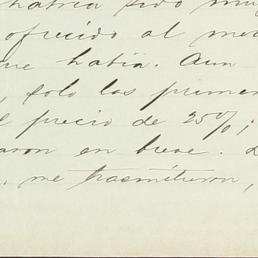 habría sido muy
ofrecido al me
que había. Aun
, solo las primer
l precio de 25%;
aron en breve.
. me trasmitieron,